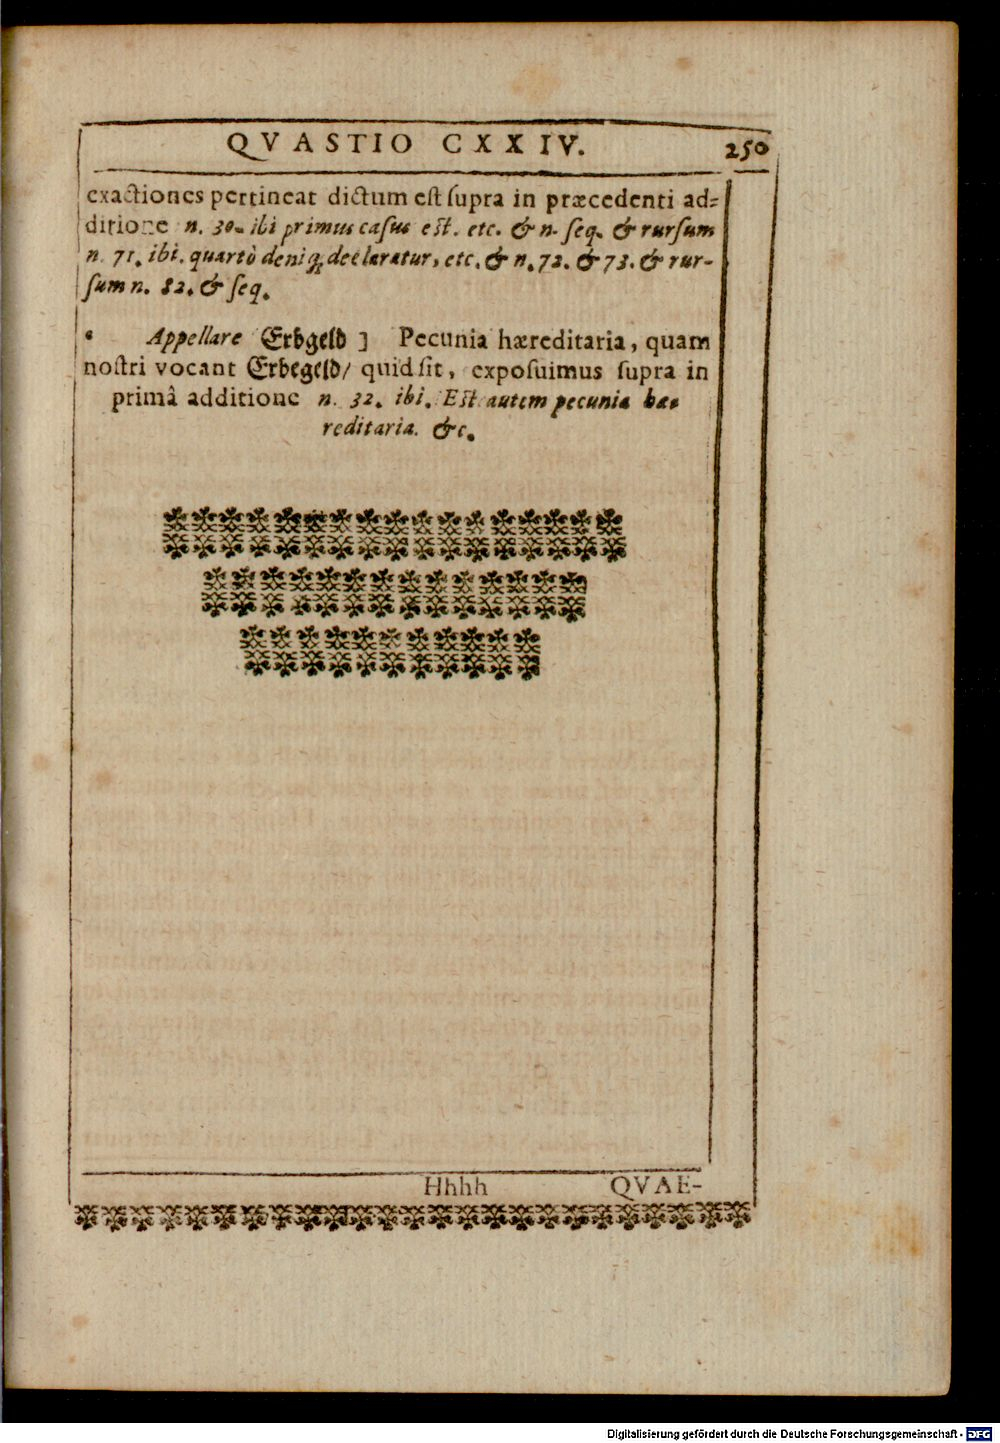 QVASTIO CXXIV. 250
exactiones pertineat dictum est supra in præcedenti ad-
ditione n. 30. ibi primus casus est. etc. & n. seq. & rursum
n. 71. ibi. quartò deniq; declaratur, etc. & n. 72. & 73. & rur-
sum n. 82. & seq.
c Appellare Erbgeld ] Pecunia hæreditaria, quam
nostri vocant Erbegeld/ quid sit, exposuimus supra in
primâ additione n. 32. ibi. Est autem pecunia hæ-
reditaria. &c.
Hhhh QVAE-
Digitalisierung gefördert durch die Deutsche Forschungsgemeinschaft - DFG